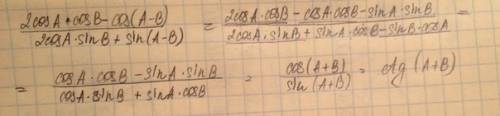 2cosA·cosB - cos(A-B) / 2cosA·sinB + sin(A-B) = 2cosA·cosB - cosA·cosB - sinA·sinB / 2cosA·sinB + sinA·cosB - sinB·cosA =
= cosA·cosB - sinA·sinB / cosA·sinB + sinA·cosB = cos(A+B) / sin(A+B) = ctg(A+B)